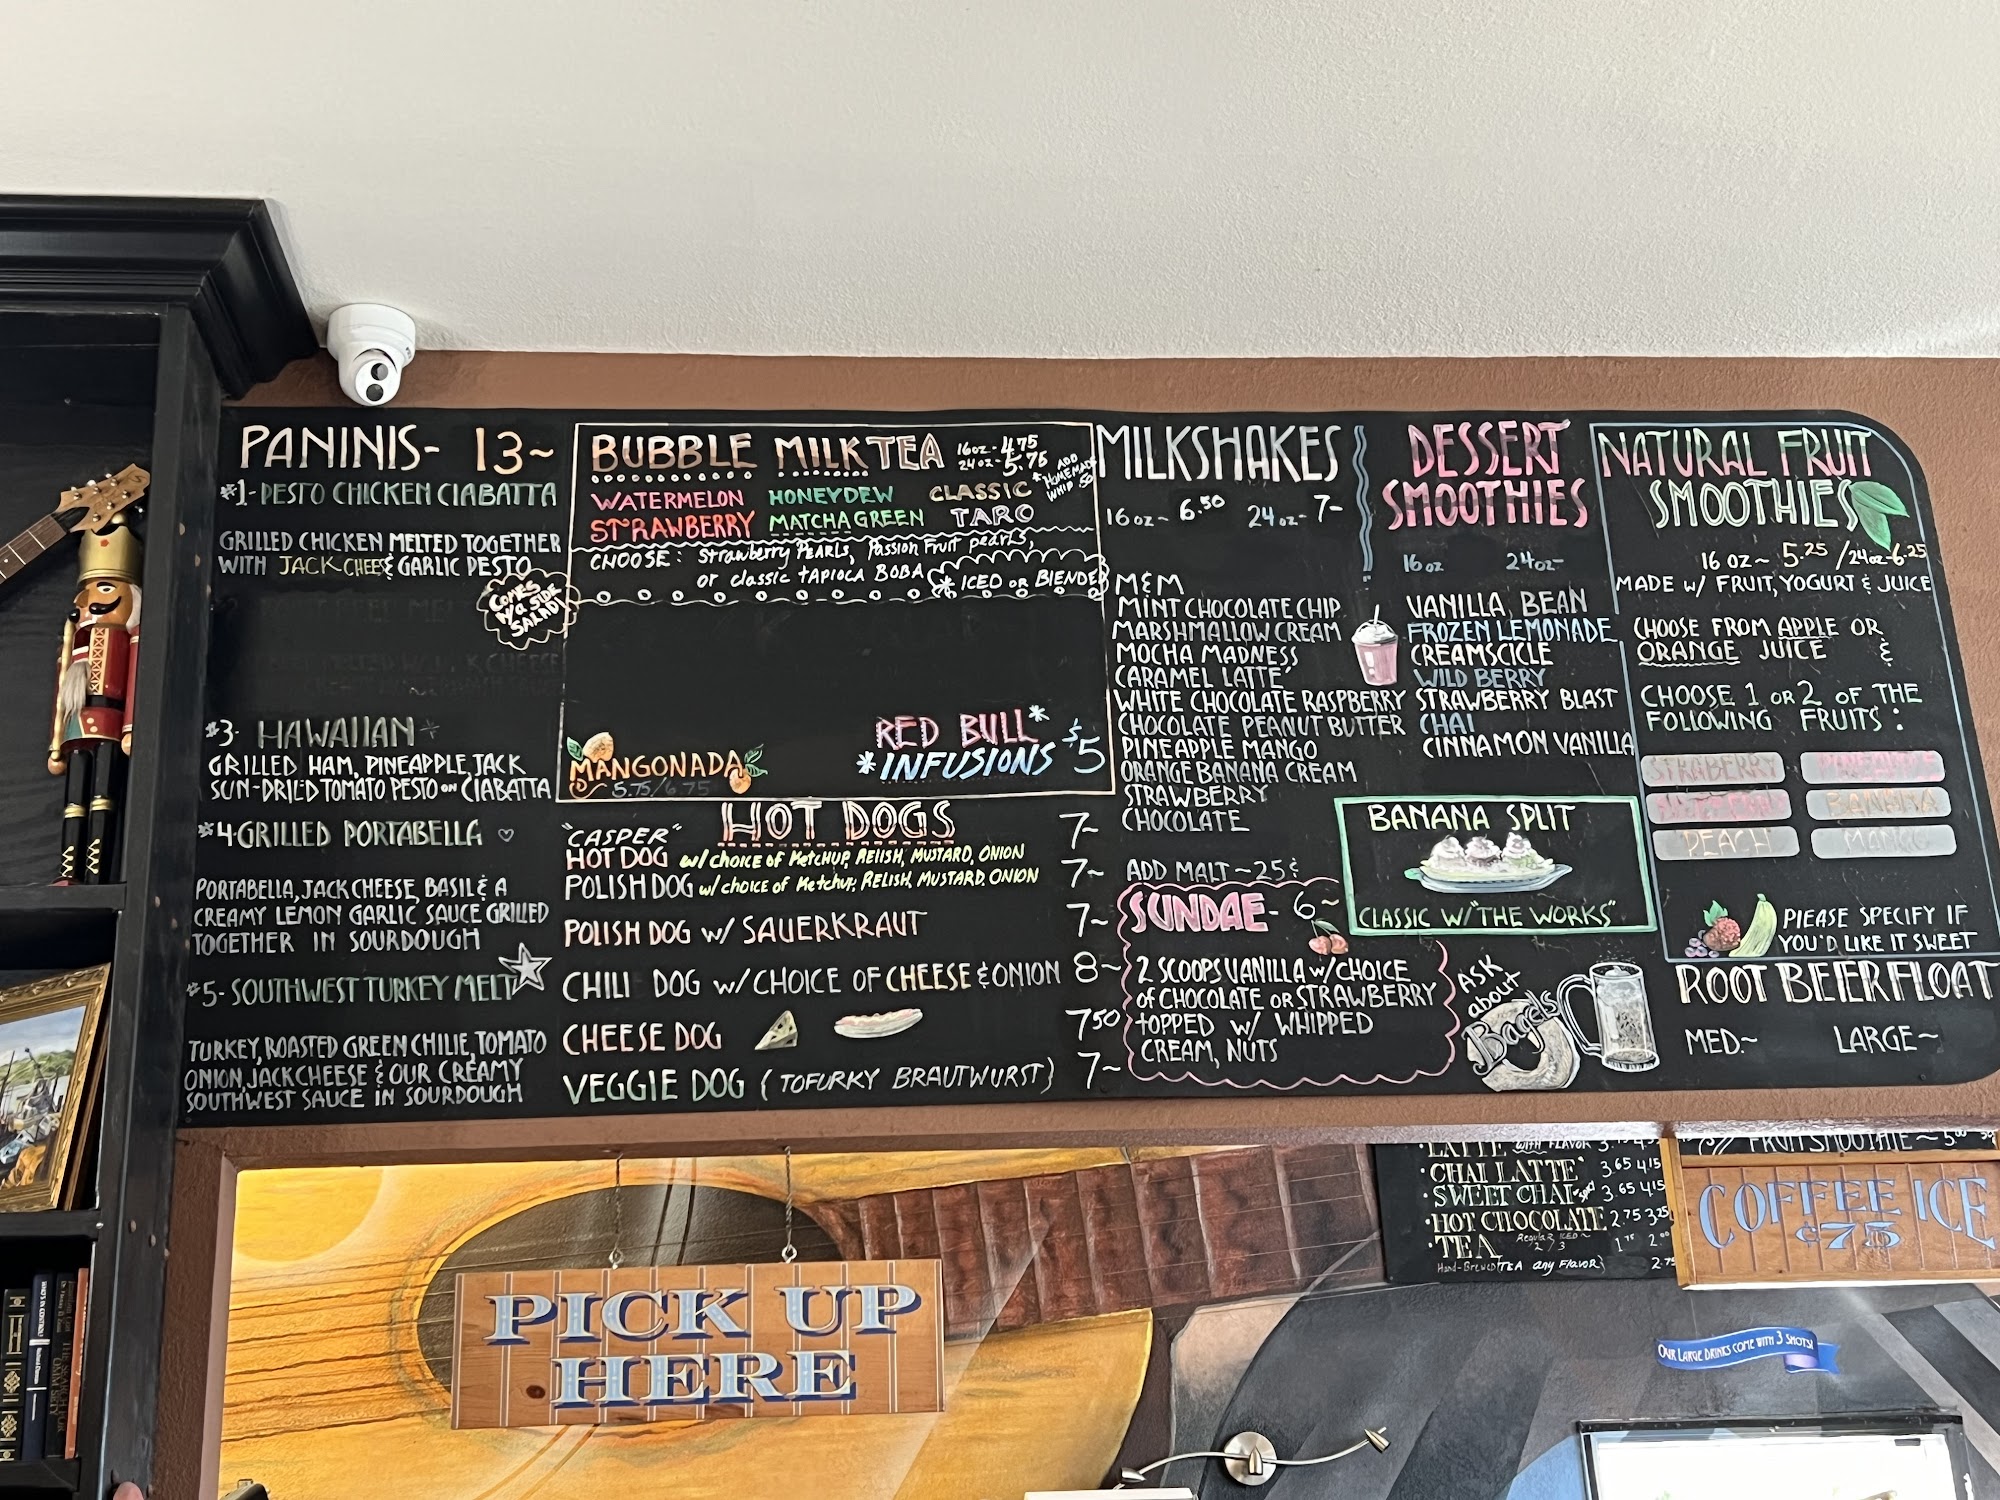 PANINIS- 13~
*1-PESTO CHICKEN CIABATTA
GRILLED CHICKEN MELTED TOGETHER
WITH JACK CHEES & GARLIC PESTO
COMES
W/a SIDE
SALAD!
*3- HAWAIIAN *
GRILLED HAM, PINEAPPLE, JACK
SUN-DRIED TOMATO PESTO ON CIABATTA
*4-GRILLED PORTABELLA
PORTABELLA, JACK CHEESE, BASIL & A
CREAMY LEMON GARLIC SAUCE GRILLED
TOGETHER IN SOURDOUGH
*5- SOUTHWEST TURKEY MELT
TURKEY, ROASTED GREEN CHILIE, TOMATO
ONION, JACK CHEESE & OUR CREAMY
SOUTHWEST SAUCE IN SOURDOUGH
BUBBLE MILK TEA
16oz- 4.75
24oz- 5.75
*ADD
HOMEMADE
WHIP 50
WATERMELON HONEYDEW CLASSIC
STRAWBERRY MATCHA GREEN TARO
CHOOSE: Strawberry PEARLS, Passion Fruit pearls,
or classic TAPIOCA BOBA
* ICED OR BLENDED
MANGONADA
5.75/6.75
RED BULL*
*INFUSIONS $5
HOT DOGS
"CASPER"
HOT DOG w/ choice of Ketchup, Relish, Mustard, Onion 7~
POLISH DOG w/ choice of Ketchup, RELISH, MUSTARD, ONION 7~
POLISH DOG w/ SAUERKRAUT 7~
CHILI DOG w/CHOICE OF CHEESE & ONION 8~
CHEESE DOG 7.50
VEGGIE DOG (TOFURKY BRAUTWURST) 7~
MILKSHAKES
16oz~ 6.50 24oz- 7-
M&M
MINT CHOCOLATE CHIP
MARSHMALLOW CREAM
MOCHA MADNESS
CARAMEL LATTE
WHITE CHOCOLATE RASPBERRY
CHOCOLATE PEANUT BUTTER
PINEAPPLE MANGO
ORANGE BANANA CREAM
STRAWBERRY
CHOCOLATE
ADD MALT ~25¢
SUNDAE- 6~
2 SCOOPS VANILLA w/CHOICE
of CHOCOLATE or STRAWBERRY
tOPPED w/ WHIPPED
CREAM, NUTS
DESSERT
SMOOTHIES
16oz 24oz-
VANILLA BEAN
FROZEN LEMONADE
CREAMSCICLE
WILD BERRY
STRAWBERRY BLAST
CHAI
CINNAMON VANILLA
BANANA SPLIT
CLASSIC W/"THE WORKS"
ASK
about
Bagels
NATURAL FRUIT
SMOOTHIES
16 oz~ 5.25 /24oz-6.25
MADE w/ FRUIT, YOGURT & JUICE
CHOOSE FROM APPLE OR
ORANGE JUICE &
CHOOSE 1 OR 2 OF THE
FOLLOWING FRUITS:
STRABERRY PINEAPPLE
BANANA
PEACH MANGO
PLEASE SPECIFY IF
YOU'D LIKE IT SWEET
ROOT BEER FLOAT
MED.~ LARGE~
PICK UP
HERE
LATTE WITH FLAVOR
·CHAI LATTE 3.65 4.15
·SWEET CHAI 3.65 4.15
·HOT CHOCOLATE 2.75 3.25
·TEA Regular ICED~ 2/3 1.75 2.00
Hand-Brewed TEA any FLAVOR 2.75
FRUIT SMOOTHIE~5.00
COFFEE ICE
¢75
OUR LARGE DRINKS COME WITH 3 SHOTS!